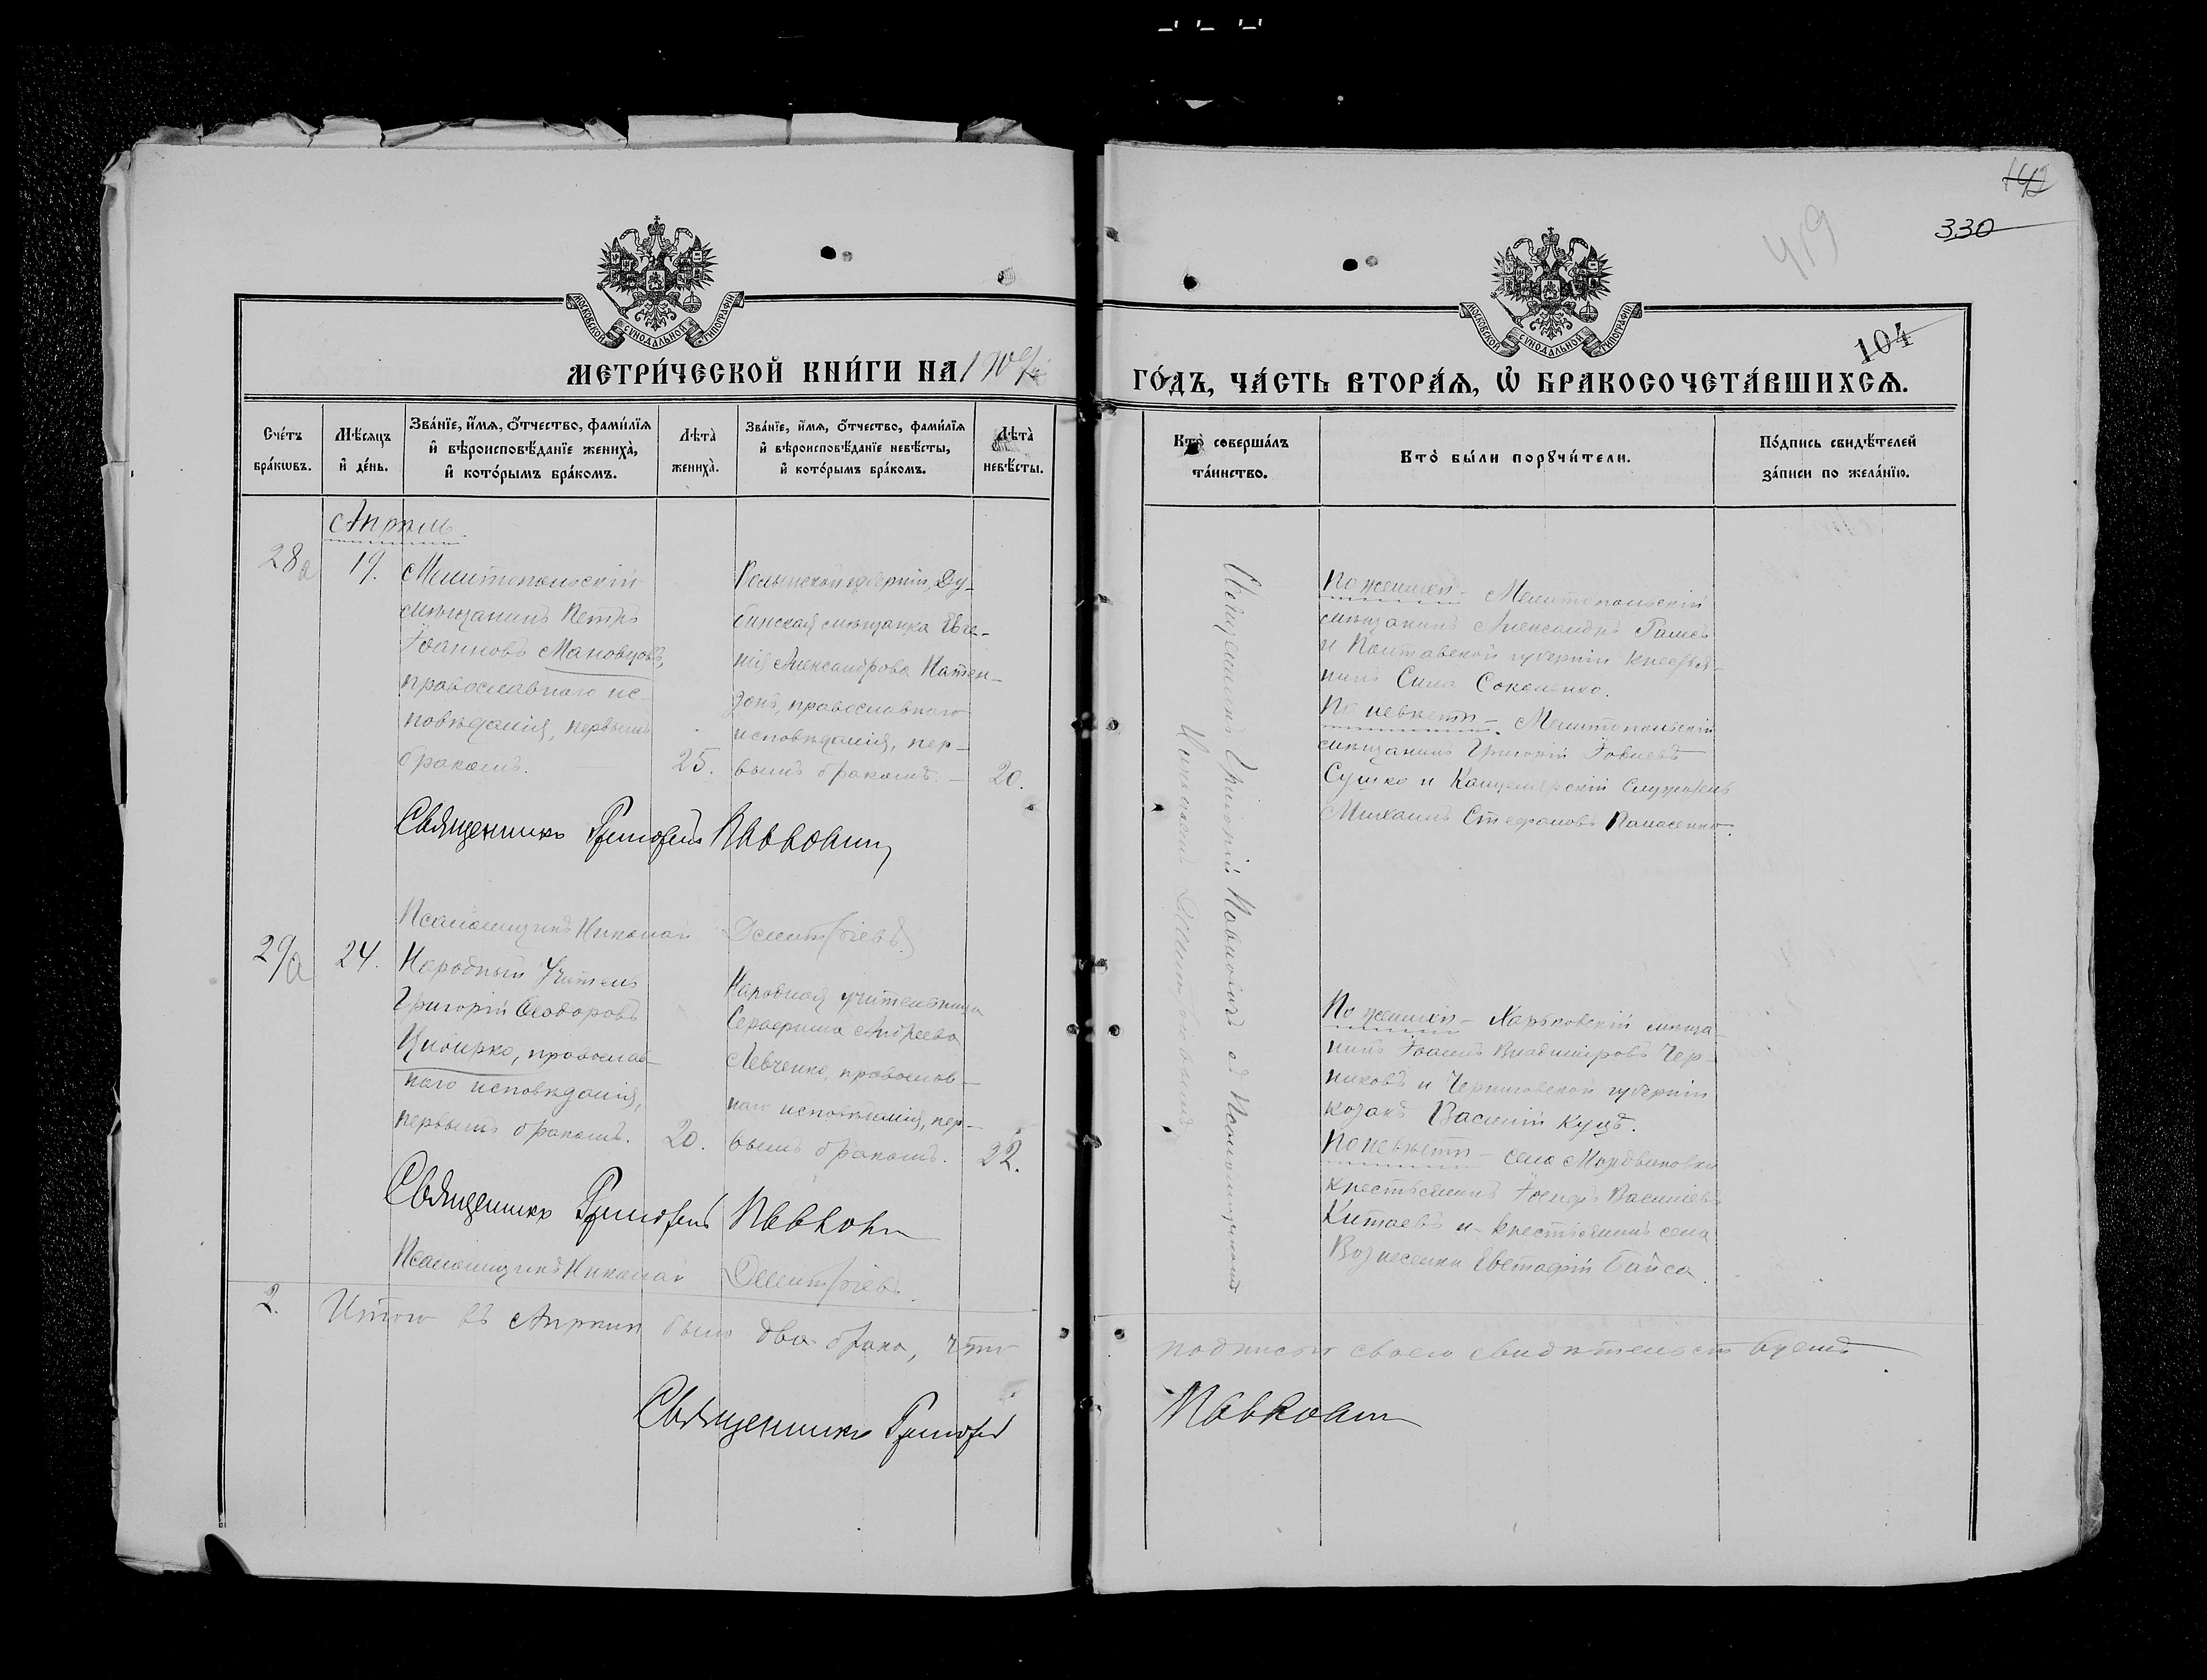 142
330
419
104
МОСКОВСКОЙ СУНОДАЛЬНОЙ ТИПОГРАФІИ
МОСКОВСКОЙ СУНОДАЛЬНОЙ ТИПОГРАФІИ
МЕТРИ́ЧЕСКОЙ КНИ́ГИ НА
ГО́ДЪ, ЧА́СТЬ ВТОРА́Ѧ, Ѽ БРАКОСОЧЕТА́ВШИХСѦ.
Сче́тъ бра́кѡвъ.
Мѣ́сѧцъ и҆ де́нь.
Зва́нїе, и҆́мѧ, ѻ҆́тчество, фами́лїѧ и҆ вѣроисповѣ́данїе жениха̀, и҆ кото́рымъ бра́комъ.
Лѣта̀ жениха̀.
Зва́нїе, и҆́мѧ, ѻ҆́тчество, фами́лїѧ и҆ вѣроисповѣ́данїе невѣ́сты, и҆ кото́рымъ бра́комъ.
Лѣта̀ невѣ́сты.
Кто̀ соверша́лъ та́инство.
Кто̀ бы́ли порꙋчи́тели.
По́дпись свидѣ́телей за́писи по жела́нїю.
Апрѣль.
28а
19.
Мелитопольскій
мѣщанинъ Петръ
Іоанновъ Маковцовъ,
православнаго ис-
повѣданія, первымъ
бракомъ.
25.
Волынской губерніи, Ду-
бинская мѣщанка Евге-
нія Александрова Натен-
зонъ, православнаго
исповѣданія, пер-
вымъ бракомъ.
20.
Священникъ Григорій Навроцкий
Священникъ Григорій
съ Псаломщикомъ
Николаемъ
По женихѣ – Мелитопольскій
мѣщанинъ Александръ
и Полтавской губерніи крестья-
нинъ Сила Соколенко.
По невѣстѣ – Мелитопольскій
мѣщанинъ Григорій Іовлевъ
Сушко и Канцелярскій Служитель
Михаилъ Стефановъ Панасенко.
Псаломщикъ Николай Дмитріевъ
29а
24.
Народный Учитель
Григорій Ѳеодоровъ
православ-
наго исповѣданія,
первымъ бракомъ.
20.
Народная учительница
Серафима Андреева
Левченко, православ-
наго исповѣданія, пер-
вымъ бракомъ.
22.
По женихѣ – Харьковскій мѣща-
нинъ Іоаннъ Владиміровъ Чер-
никовъ и Черниговской губерніи
козакъ Василій Куцъ.
По невѣстѣ – села Мордвиновки
крестьянинъ Іосифъ Васильевъ
Китаевъ и крестьянинъ села
Вознесенки Евстафій Байса.
Священникъ Григорій
Псаломщикъ Николай Дмитріевъ.
2.
Итого въ Апрѣлѣ было два брака, что
подписью своею свидѣтельствуемъ
Священникъ Григорій